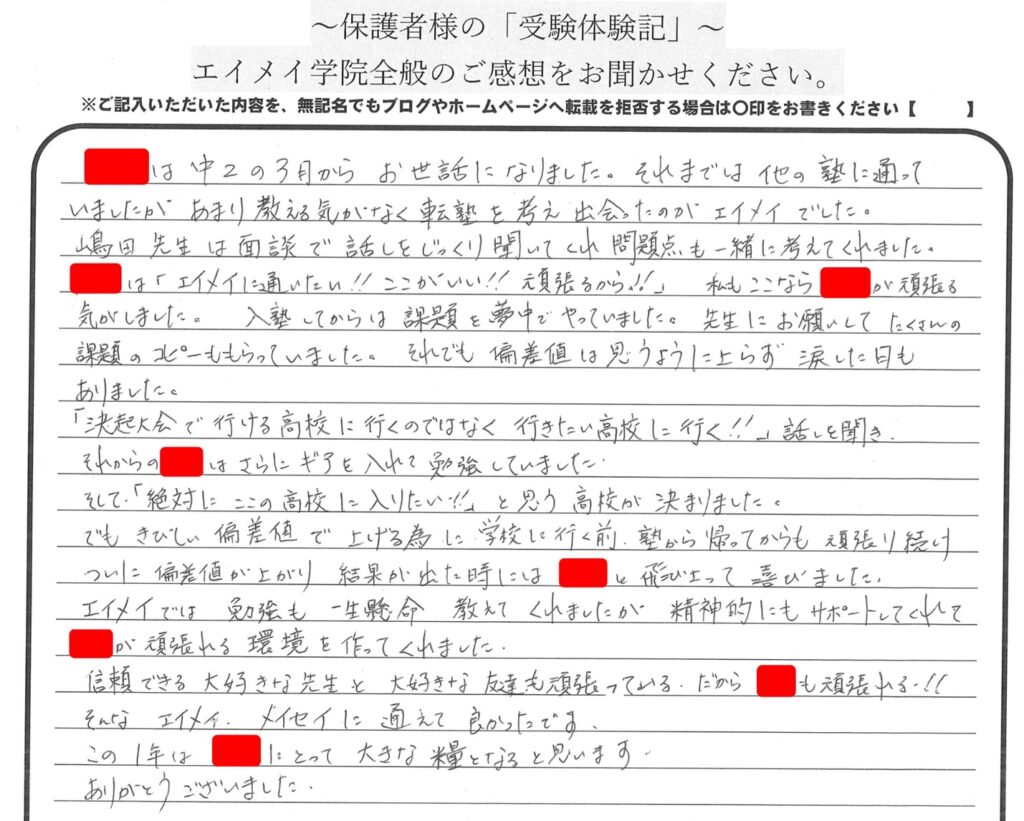 ～保護者様の「受験体験記」～
エイメイ学院全般のご感想をお聞かせください。
※ご記入いただいた内容を、無記名でもブログやホームページへ転載を拒否する場合は〇印をお書きください【　　　】
は中2の3月から お世話になりました。それまでは他の塾に通って
いましたが あまり教える気がなく転塾を考え出会ったのがエイメイでした。
嶋田先生は面談で話しをじっくり聞いてくれ問題点も一緒に考えてくれました。
は「エイメイに通いたい!!ここがいい!!頑張るから!!」 私もここなら が頑張る
気がしました。 入塾してからは課題を夢中でやっていました。先生にお願いしてたくさんの
課題のコピーももらっていました。それでも偏差値は思うように上らず涙した日も
ありました。
「決起大会で行ける高校に行くのではなく行きたい高校に行く!!」話しを聞き、
それからの はさらにギアを入れて勉強していました。
そして、「絶対にここの高校に入りたい!!」と思う高校が決まりました。
でもきびしい偏差値で上げる為に学校に行く前、塾から帰ってからも頑張り続け
ついに偏差値が上がり 結果が出た時には と飛び上って喜びました。
エイメイでは勉強も一生懸命教えてくれましたが精神的にもサポートしてくれて
が頑張れる環境を作ってくれました。
信頼できる大好きな先生と大好きな友達も頑張っている。だから も頑張れる!!
そんなエイメイ、メイセイに通えて良かったです。
この1年は にとって大きな糧となると思います。
ありがとうございました。